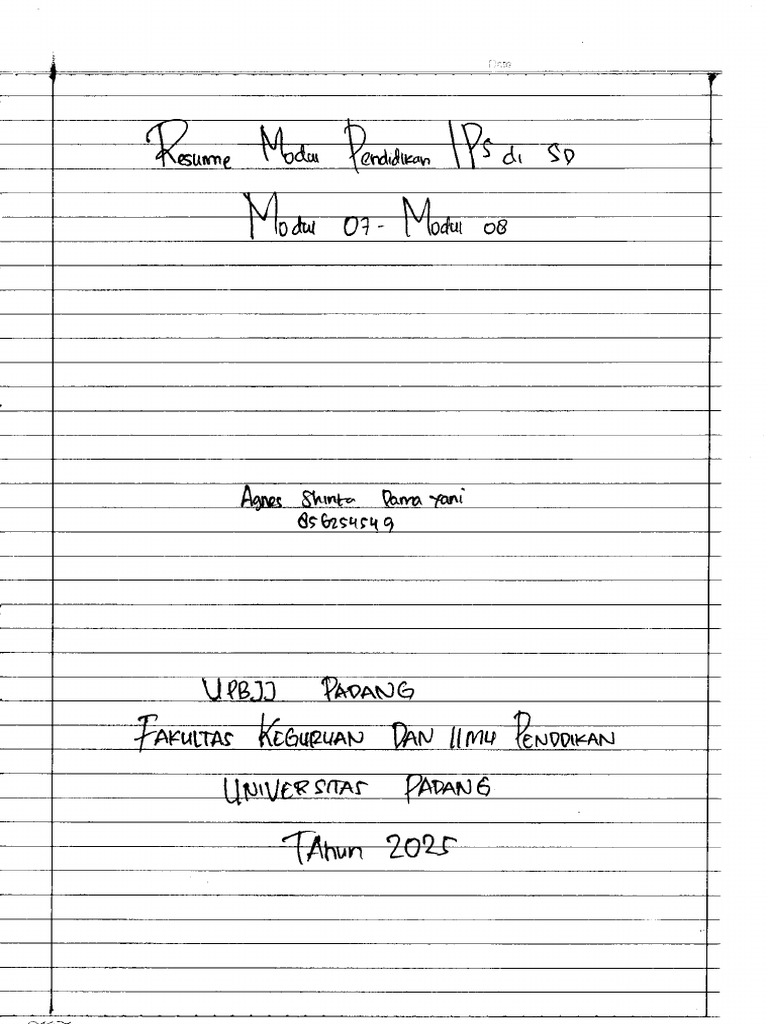 Date
Resume Modul Pendidikan IPS di SD
Modul 07 - Modul 08
Agnes Shinta Damayani
856254549
UPBJJ PADANG
FAKULTAS KEGURUAN DAN ILMU PENDDIKAN
UNIVERSITAS PADANG
TAhun 2025